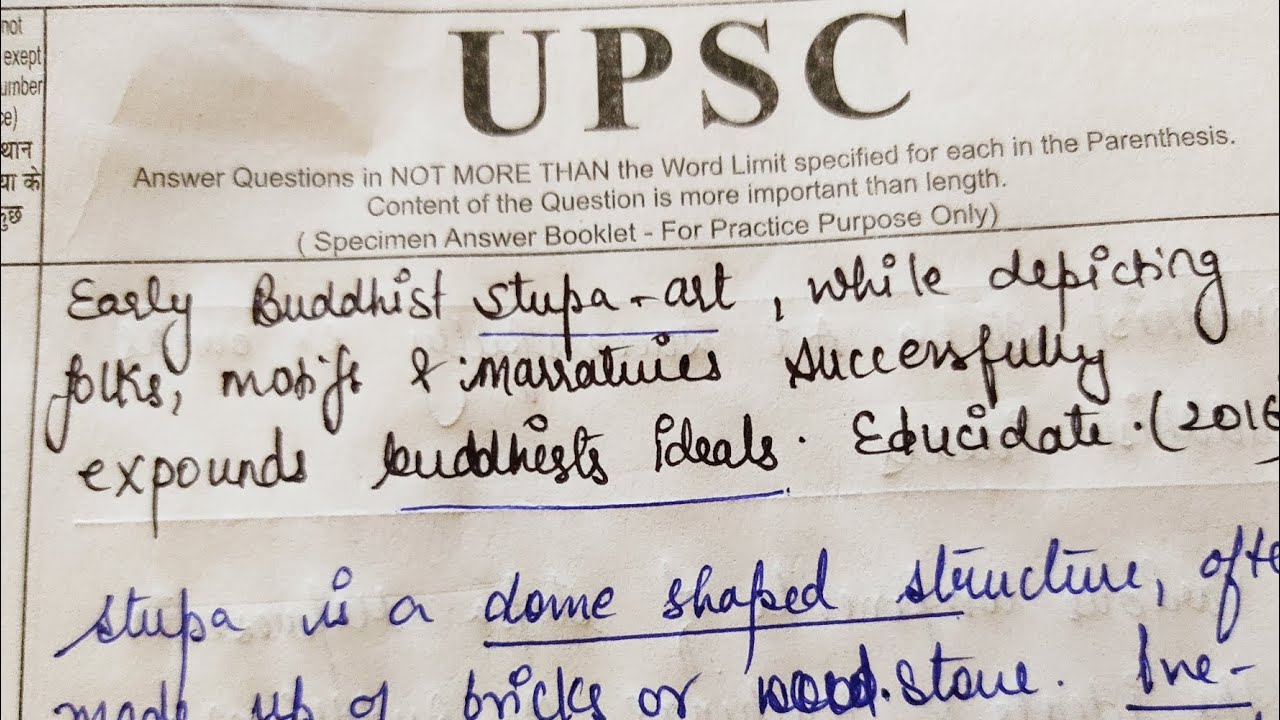 not
exept
umber
ce)
थान
या के
कुछ
UPSC
Answer Questions in NOT MORE THAN the Word Limit specified for each in the Parenthesis.
Content of the Question is more important than length.
( Specimen Answer Booklet - For Practice Purpose Only)
Early Buddhist stupa-art, while depicting
folks, motifs & narratives successfully
expounds buddhists ideals. Educidate. (2016)
stupa is a dome shaped structure, ofte
made up of bricks or stone. Ine-